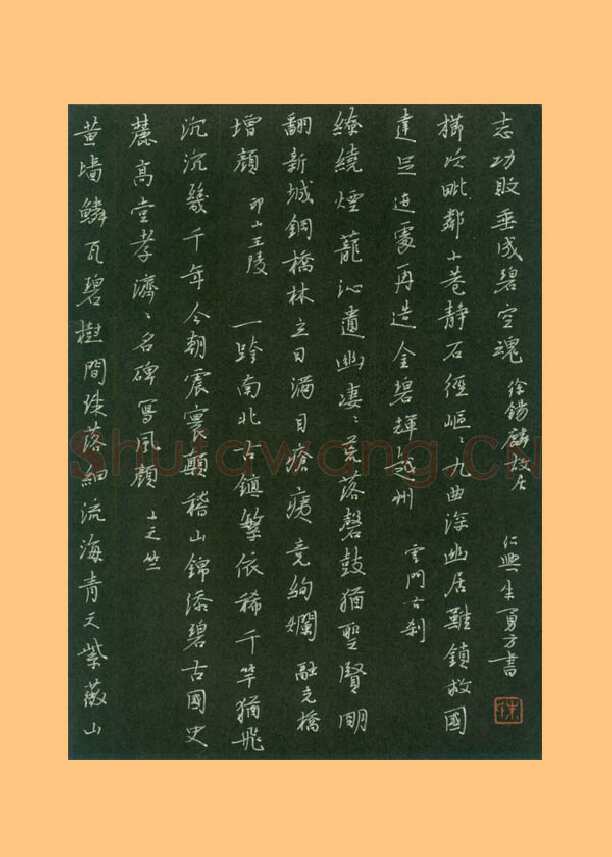 黄墙鳞瓦碧樹間珠落細流海青天紫薇山
麓高堂孝濟〻名碑寫風顏 上之竺
沉沉幾千年今朝震寰顛稽山錦添碧古國史
增顏 印山王陵 一跨南北古鎮繁依稀千竿猶飛
翻新城鋼橋林立日滿目瘡痍竞絢斕 融光橋
繚繞煙蘢沁遺幽凄〻荒落磬鼓猶聖賢明
達足迹處再造金碧輝越州 雲門古刹
櫛次毗鄰小巷靜石徑嶇〻九曲深幽居難鎖救國
志功敗垂成碧空魂 徐錫麟故居 仁興生勇方書
Shufawang.CN